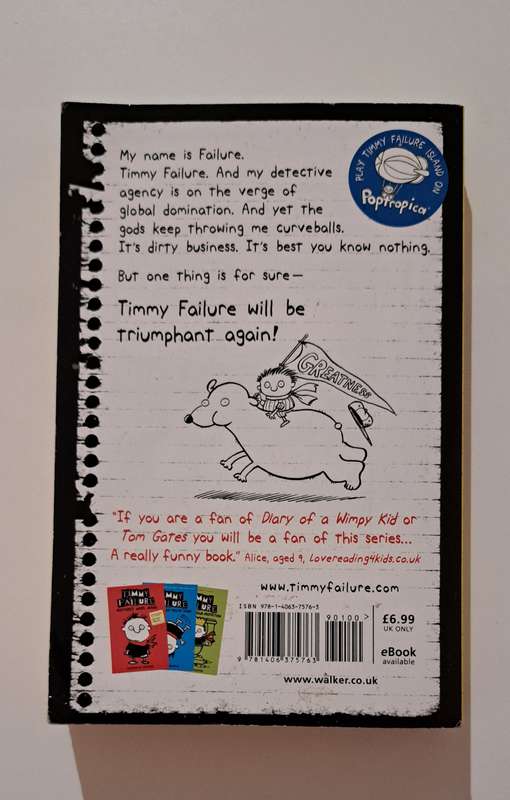 My name is Failure.
Timmy Failure. And my detective
agency is on the verge of
global domination. And yet the
gods keep throwing me curveballs.
It's dirty business. It's best you know nothing.
But one thing is for sure—
Timmy Failure will be
triumphant again!
PLAY TIMMY FAILURE ISLAND ON
Poptropica
GREATNESS
"If you are a fan of Diary of a Wimpy Kid or
Tom Gates you will be a fan of this series...
A really funny book." Alice, aged 9, Lovereading4kids.co.uk
www.timmyfailure.com
TIMMY
FAILURE
TIMMY
FAILURE
TIMMY
FAILURE
ISBN 978-1-4063-7576-3
90100 >
9 781406 375763
£6.99
UK ONLY
eBook
available
www.walker.co.uk